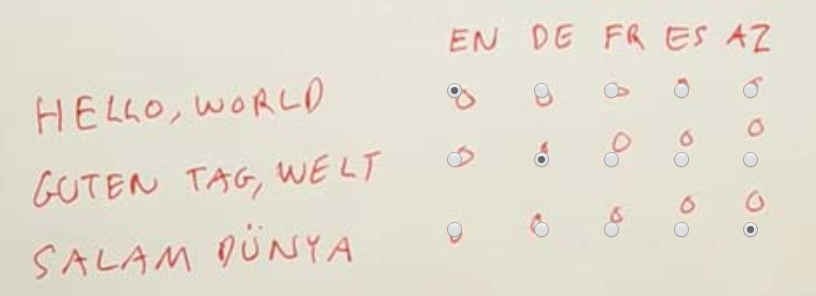 EN DE FR ES AZ
HELLO, WORLD
GUTEN TAG, WELT
SALAM DÜNYA